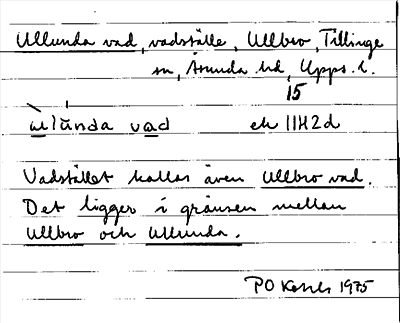 Ullunda vad, vadställe, Ullbro, Tillinge
sn, Åsunda hd, Upps. l.
15
ùlúnda vad ek 11H2d
Vadstället kallas även Ullbro vad.
Det ligger i gränsen mellan
Ullbro och Ullunda.
PO 1975